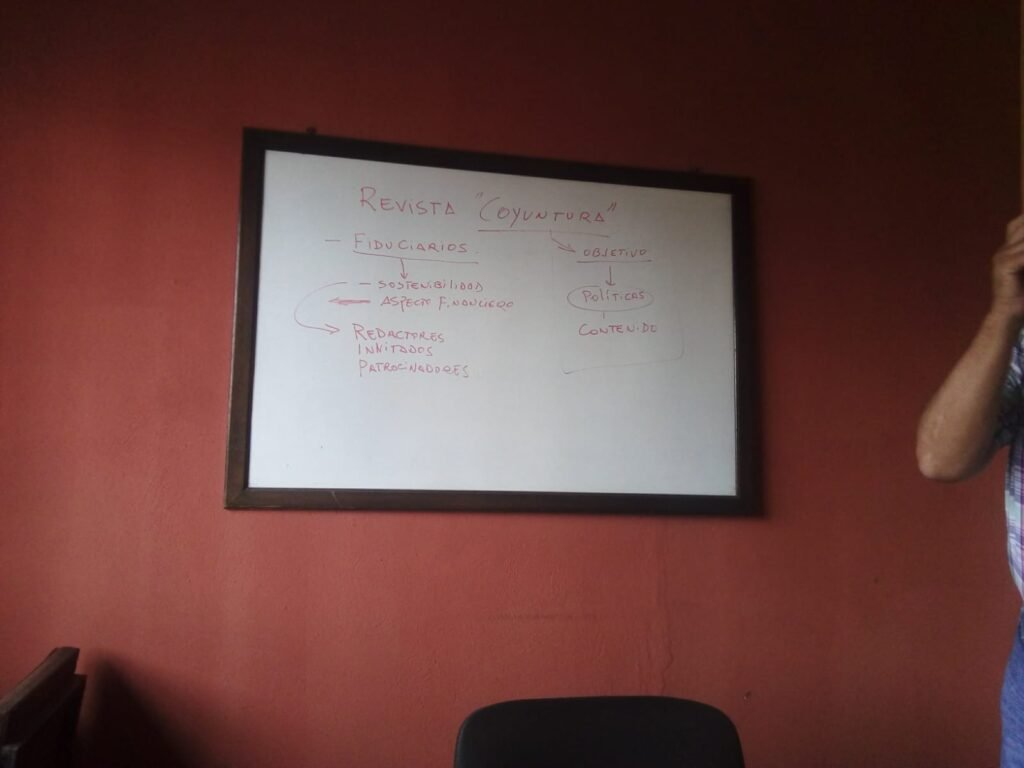 REVISTA "COYUNTURA"
— FIDUCIARIOS.
— SOSTENIBILIDAD
— ASPECTO FINANCIERO
REDACTORES
INVITADOS
PATROCINADORES
OBJETIVO
POLÍTICAS
CONTENIDO